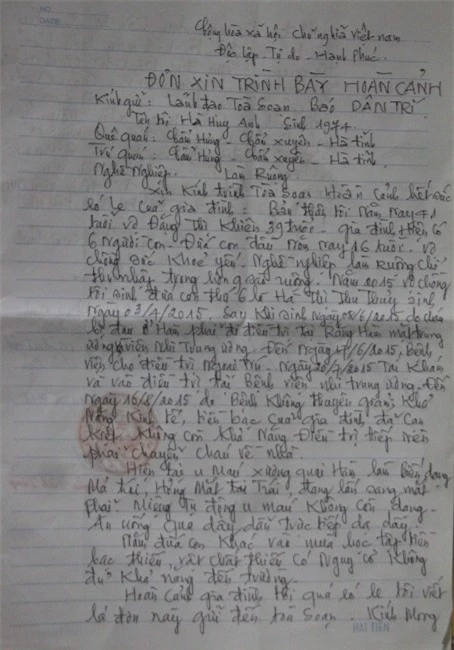 NO.
DATE
Cộng hòa xã hội chủ nghĩa việt nam
Độc lập - Tự do - Hạnh phúc.
ĐƠN XIN TRÌNH BÀY HOÀN CẢNH
Kính gửi: Lãnh đạo Toà Soạn Báo DÂN TRÍ
Tên tôi Hà Huy Anh Sinh 1974.
Quê quán: Cẩm Hưng - Cẩm Xuyên - Hà tĩnh
Trú quán: Cẩm Hưng - Cẩm Xuyên - Hà tĩnh.
Nghề Nghiệp. Làm Ruộng.
Xin Kính trình Toà Soạn Hoàn Cảnh hết sức
éo le của gia đình: Bản thân tôi Năm Nay 41
tuổi vợ Đặng Thị Khiên 39 tuổi. gia đình Hiện Có
6 Người con. Đứa con đầu Năm nay 16 tuổi. vợ
chồng sức khoẻ yếu. Nghề nghiệp làm Ruộng chỉ
thu nhập trong ruộng. Năm 2015 vợ chồng
tôi sinh đứa con thứ 6 là Hà Thị Thu Thuỷ sinh
Ngày 03/4/2015. Say Khi sinh Ngày 08/6/2015. do cháu
bị đau ở Hàm phải đi điều trị tại Răng Hàm mặt trung
ương viện Nhi Trung ương. Đến Ngày 17/6/2015, bệnh
viện cho điều trị Ngoại trú. Ngày 20/7/2015 Tái Khám
và vào điều trị tại Bệnh viện nhi trung ương. Đến
Ngày 16/8/2015 do Bệnh Không thuyên giảm, Khả
Năng Kinh tế, tiền bạc của gia đình đã Cạn
Kiệt Không còn Khả Năng Điều trị tiếp nên
phải chuyển cháu về Nhà
Hiện tại u Máu xương quai Hàm làm biến dạng
Má trái, Hỏng Mắt tai Trái, đang lấn sang mặt
phải Miệng tự động u máu Không còn đang.
Ăn uống qua dây dẫn trực tiếp dạ dày.
Năm đứa con Khác vào mùa học tập tiền
bạc thiếu, vật chất thiếu có Nguy cơ Không
đủ Khả năng đến trường.
Hoàn Cảnh gia đình tôi quá éo le tôi viết
lá đơn này gửi đến toà soạn. Kính Mong
HẢI TIẾN